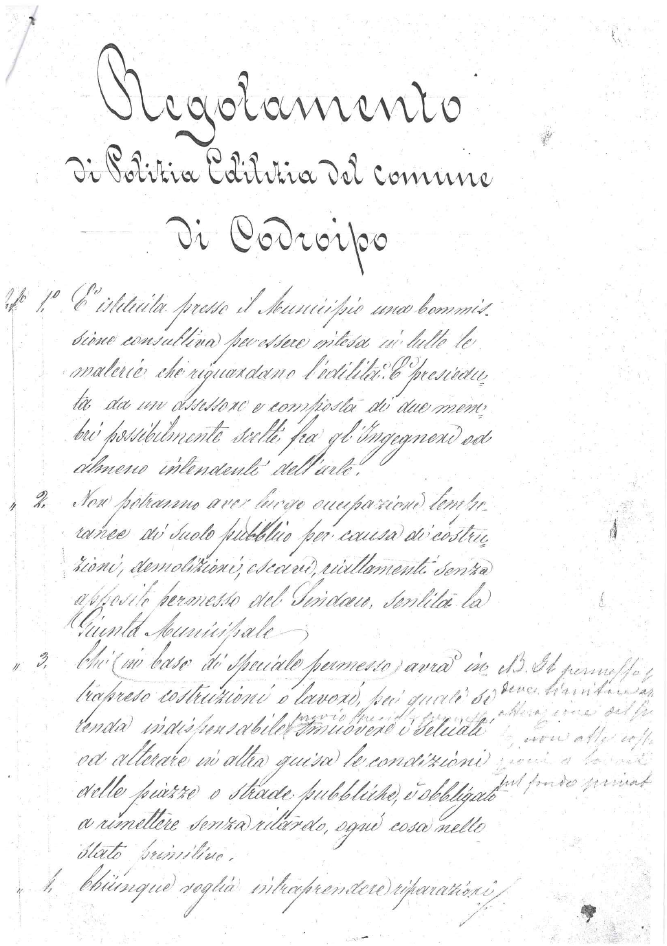 Regolamento
di Polizia Edilizia del comune
di Codroipo
1.° E' istituita presso il Municipio una Commis-
sione consultiva per essere intesa in tutte le
materie che riguardano l'edilità. E' presiedu-
ta da un assessore e composta di due mem-
bri possibilmente scelti fra gl'Ingegneri od
almeno intendenti dell'arte.
" 2. Non potranno aver luogo occupazioni tempo-
ranee di suolo pubblico per causa di costru-
zioni, demolizioni, escavi, riattamenti senza
apposito permesso del Sindaco, sentita la
Giunta Municipale
" 3. Chi (in base di speciale permesso) avrà in-
trapreso costruzioni o lavori, pei quali si
renda indispensabile smuovere i selciati
od alterare in altra guisa le condizioni
delle piazze o strade pubbliche, è obbligato
a rimettere senza ritardo, ogni cosa nello
stato primitivo.
N.B. Il permesso
deve
non alle
sul fondo privat
" 4. Chiunque voglia intraprendere riparazioni